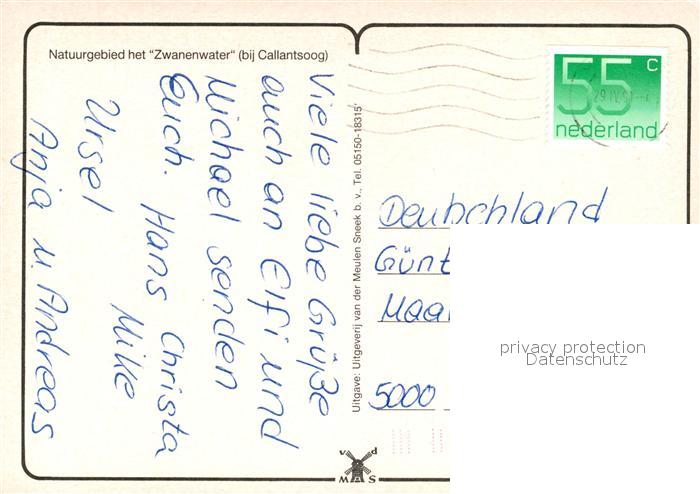 Natuurgebied het "Zwanenwater" (bij Callantsoog)
Viele liebe Grüße
auch an Elfi und
Michael senden
Euch. Hans Christa
Ursel Mike
Anja u. Andreas
Uitgave: Uitgeverij van der Meulen Sneek b. v., Tel. 05150-18315
v d
MAS
55 c
nederland
Deutschland
Günt
Maa
5000
privacy protection
Datenschutz